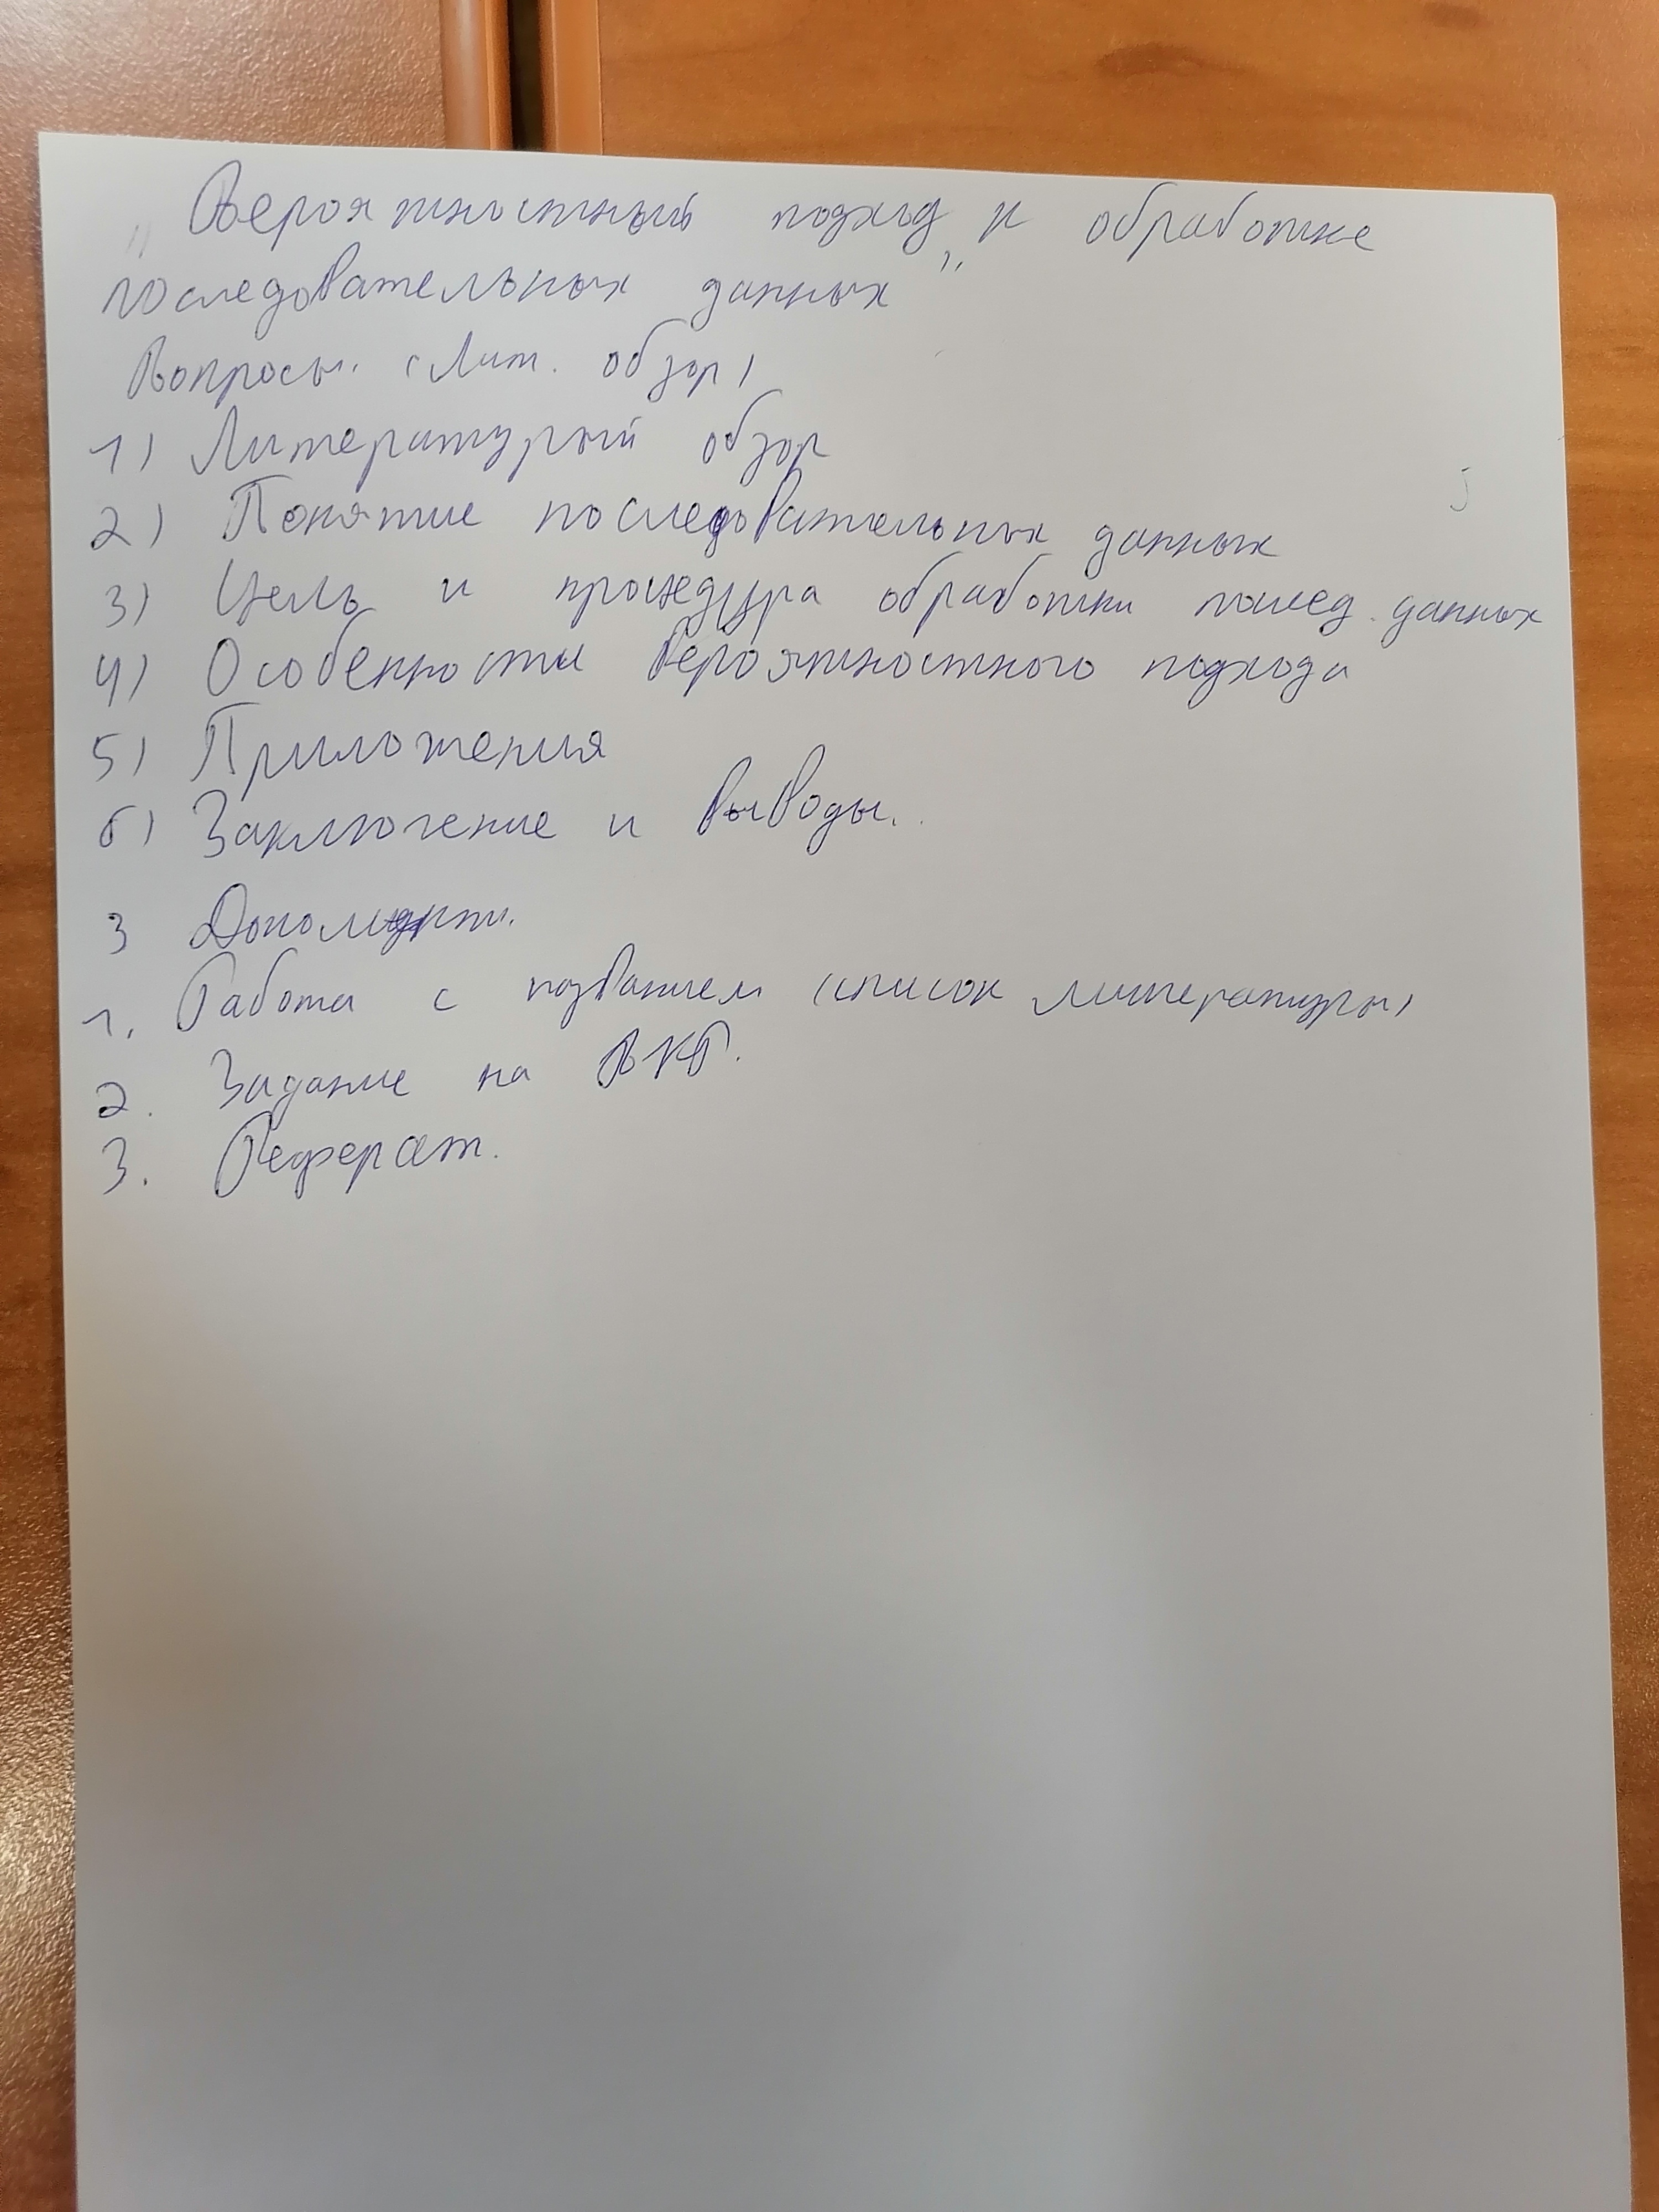 "Вероятностный подход к обработке
последовательных данных"
Вопросы. (Лит. обзор)
1) Литературный обзор
2) Понятие последовательных данных
3) Цель и процедура обработки послед. данных
4) Особенности вероятностного подхода
5) Приложения
6) Заключение и выводы.
3
1. Работа с названием (список литературы)
2. Задание на ВКР.
3. Реферат.